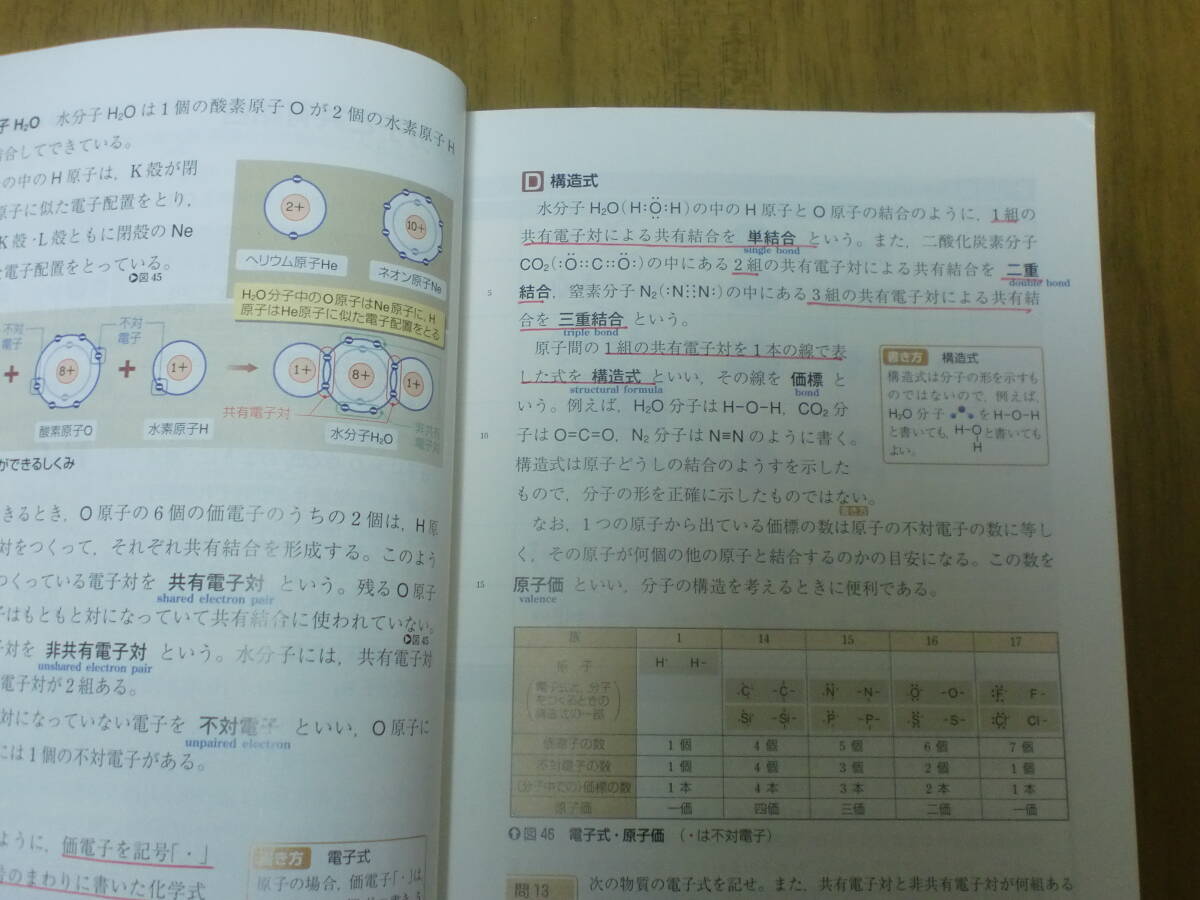 子 H₂O 水分子H₂Oは1個の酸素原子Oが2個の水素原子H
合してできている。
の中のH原子は，K殻が閉
原子に似た電子配置をとり，
K殻・L殻ともに閉殻のNe
電子配置をとっている。
▶図45
2+
10+
ヘリウム原子He
ネオン原子Ne
H₂O分子中のO原子はNe原子に，H
原子はHe原子に似た電子配置をとる
不対
電子
不対
電子
+ 8+ + 1+ → 1+ 8+ 1+
共有電子対
非共有
電子対
酸素原子O
水素原子H
水分子H₂O
ができるしくみ
きるとき，O原子の6個の価電子のうちの2個は，H原
対をつくって，それぞれ共有結合を形成する。このよう
つくっている電子対を 共有電子対 という。残るO原子
shared electron pair
子はもともと対になっていて共有結合に使われていない。
▶図45
対を 非共有電子対 という。水分子には，共有電子対
unshared electron pair
電子対が2組ある。
対になっていない電子を 不対電子 といい，O原子に
unpaired electron
には1個の不対電子がある。
ように，価電子を記号「・」
のまわりに書いた化学式
書き方 電子式
原子の場合，価電子「・」は
D 構造式
水分子 H₂O(H:Ö:H)の中のH原子とO原子の結合のように，1組の
共有電子対による共有結合を 単結合 という。また，二酸化炭素分子
single bond
CO₂(:Ö::C::Ö:)の中にある2組の共有電子対による共有結合を 二重
double bond
5 結合，窒素分子N₂(:N⋮⋮N:)の中にある3組の共有電子対による共有結
合を 三重結合 という。
triple bond
原子間の1組の共有電子対を1本の線で表
した式を 構造式 といい，その線を 価標 と
structural formula
bond
いう。例えば，H₂O分子はH-O-H，CO₂分
10 子はO=C=O，N₂分子はN≡Nのように書く。
構造式は原子どうしの結合のようすを示した
もので，分子の形を正確に示したものではない。
書き方
書き方 構造式
構造式は分子の形を示すも
のではないので，例えば，
H₂O分子 をH-O-H
と書いても，H-O と書いても
H
よい。
なお，1つの原子から出ている価標の数は原子の不対電子の数に等し
く，その原子が何個の他の原子と結合するのかの目安になる。この数を
15 原子価 といい，分子の構造を考えるときに便利である。
valence
族 1 14 15 16 17
原 子
(電子式と，分子
をつくるときの
構造式の一部)
H· H-
·C· -C- ·N· -N- ·O· -O- :F· F-
·Si· -Si- ·P· -P- ·S· -S- :Cl· Cl-
価電子の数 1個 4個 5個 6個 7個
不対電子の数 1個 4個 3個 2個 1個
(分子中での)価標の数 1本 4本 3本 2本 1本
原子価 一価 四価 三価 二価 一価
図46 電子式・原子価 （・は不対電子）
問13 次の物質の電子式を記せ。また，共有電子対と非共有電子対が何組ある